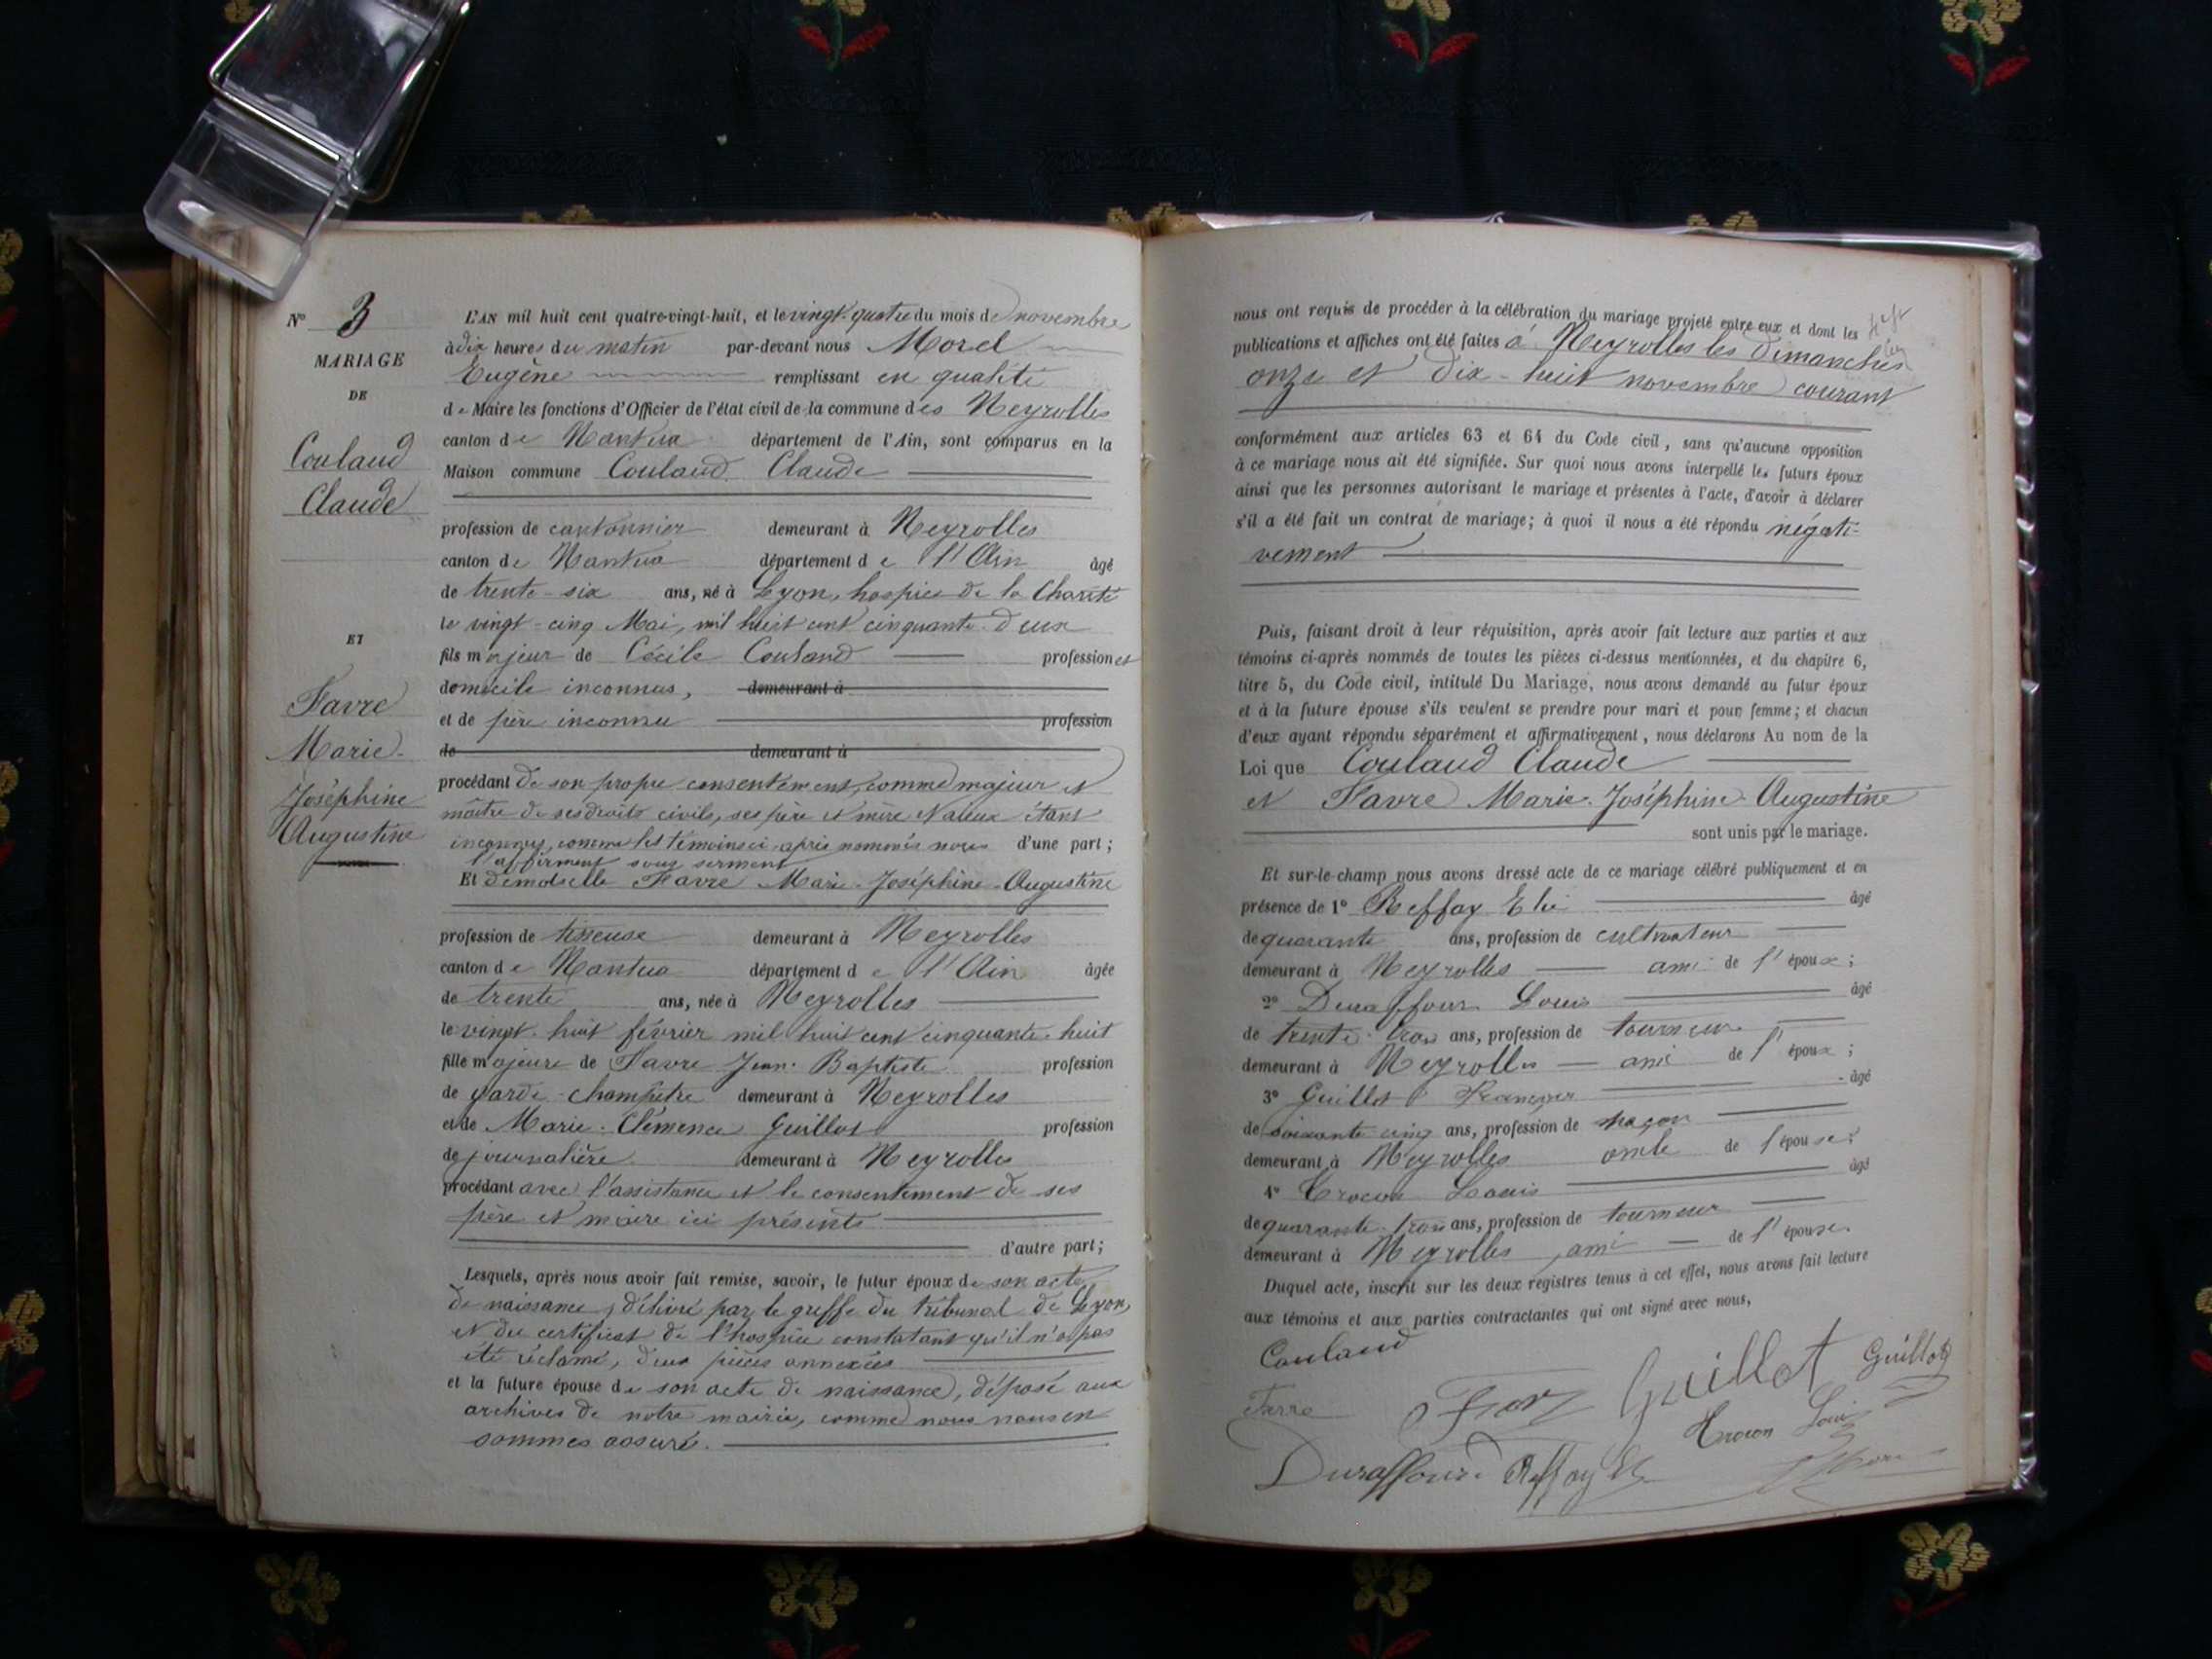 N° 3
MARIAGE
DE
Coulaud
Claude
ET
Favre
Marie-
Joséphine
Augustine
L'AN mil huit cent quatre-vingt-huit, et le vingt-quatre du mois de novembre
à dix heures du matin par-devant nous Morel
Eugène remplissant en qualité
de Maire les fonctions d'Officier de l'état civil de la commune des Neyrolles
canton de Nantua département de l'Ain, sont comparus en la
Maison commune Coulaud Claude
profession de cantonnier demeurant à Neyrolles
canton de Nantua département de l'Ain âgé
de trente-six ans, né à Lyon, hospice de la Charité
le vingt-cinq Mai, mil huit cent cinquante-deux
fils majeur de Cécile Coulaud profession et
domicile inconnus, demeurant à
et de père inconnu profession
de demeurant à
procédant de son propre consentement, comme majeur et
maître de ses droits civils, ses père et mère et aïeux étant
inconnus, comme les témoins ci-après nommés nous d'une part;
l'affirment sous serment
Et demoiselle Favre Marie-Joséphine-Augustine
profession de tisseuse demeurant à Neyrolles
canton de Nantua département de l'Ain âgée
de trente ans, née à Neyrolles
le vingt-huit février mil huit cent cinquante-huit
fille majeure de Favre Jean-Baptiste profession
de garde-champêtre demeurant à Neyrolles
et de Marie-Clémence Guillot profession
de journalière demeurant à Neyrolles
procédant avec l'assistance et le consentement de ses
père et mère ici présents
d'autre part;
Lesquels, après nous avoir fait remise, savoir, le futur époux de son acte
de naissance, délivré par le greffe du tribunal de Lyon,
et du certificat de l'hospice constatant qu'il n'a pas
été réclamé, deux pièces annexées
et la future épouse de son acte de naissance, déposé aux
archives de notre mairie, comme nous nous en
sommes assuré.
nous ont requis de procéder à la célébration du mariage projeté entre eux et dont les
publications et affiches ont été faites à Neyrolles les dimanches
onze et dix-huit novembre courant
conformément aux articles 63 et 64 du Code civil, sans qu'aucune opposition
à ce mariage nous ait été signifiée. Sur quoi nous avons interpellé les futurs époux
ainsi que les personnes autorisant le mariage et présentes à l'acte, d'avoir à déclarer
s'il a été fait un contrat de mariage; à quoi il nous a été répondu négati-
vement
Puis, faisant droit à leur réquisition, après avoir fait lecture aux parties et aux
témoins ci-après nommés de toutes les pièces ci-dessus mentionnées, et du chapitre 6,
titre 5, du Code civil, intitulé Du Mariage, nous avons demandé au futur époux
et à la future épouse s'ils veulent se prendre pour mari et pour femme; et chacun
d'eux ayant répondu séparément et affirmativement, nous déclarons Au nom de la
Loi que Coulaud Claude
et Favre Marie-Joséphine-Augustine
sont unis par le mariage.
Et sur-le-champ nous avons dressé acte de ce mariage célébré publiquement et en
présence de 1° Reffay Elie âgé
de quarante ans, profession de cultivateur
demeurant à Neyrolles ami de l'époux;
2° Duraffour Louis âgé
de trente-trois ans, profession de tourneur
demeurant à Neyrolles ami de l'époux;
3° Guillot François âgé
de soixante cinq ans, profession de maçon
demeurant à Neyrolles oncle de l'épouse;
4° Crocon Louis âgé
de quarante-trois ans, profession de tourneur
demeurant à Neyrolles, ami de l'épouse.
Duquel acte, inscrit sur les deux registres tenus à cet effet, nous avons fait lecture
aux témoins et aux parties contractantes qui ont signé avec nous,
Coulaud
Guillot Guillot
Louis
Duraffour Reffay